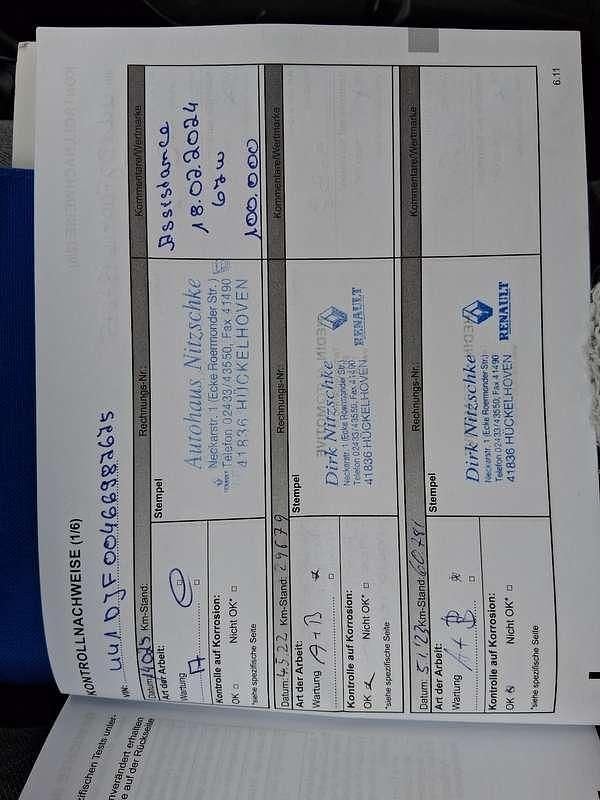 KONTROLLNACHWEISE (1/6)
VIN: UU1DJF00466982675
Datum: Km-Stand: Rechnungs-Nr.: Kommentare/Wertmarke
Art der Arbeit:
Wartung
A
Kontrolle auf Korrosion:
OK □ Nicht OK* □
*siehe spezifische Seite
Stempel
Autohaus Nitzschke
Neckarstr. 1 (Ecke Roermonder Str.)
Telefon 02433/43550, Fax 41490
41836 HÜCKELHOVEN
Assistance
18.02.2024
bzw
100.000
Datum: 4.5.22 Km-Stand: 29679 Rechnungs-Nr.: Kommentare/Wertmarke
Art der Arbeit:
Wartung A+B x
Kontrolle auf Korrosion:
OK x Nicht OK* □
*siehe spezifische Seite
Stempel
Dirk Nitzschke
Neckarstr. 1 (Ecke Roermonder Str.)
Telefon 02433/43550, Fax 41490
41836 HÜCKELHOVEN
RENAULT
Datum: 5.1.23 Km-Stand: Rechnungs-Nr.: Kommentare/Wertmarke
Art der Arbeit:
Wartung A+B x
Kontrolle auf Korrosion:
OK x Nicht OK* □
*siehe spezifische Seite
Stempel
Dirk Nitzschke
Neckarstr. 1 (Ecke Roermonder Str.)
Telefon 02433/43550, Fax 41490
41836 HÜCKELHOVEN
RENAULT
6.11
ifischen Tests unter-
nverändert erhalten
e auf der Rückseite